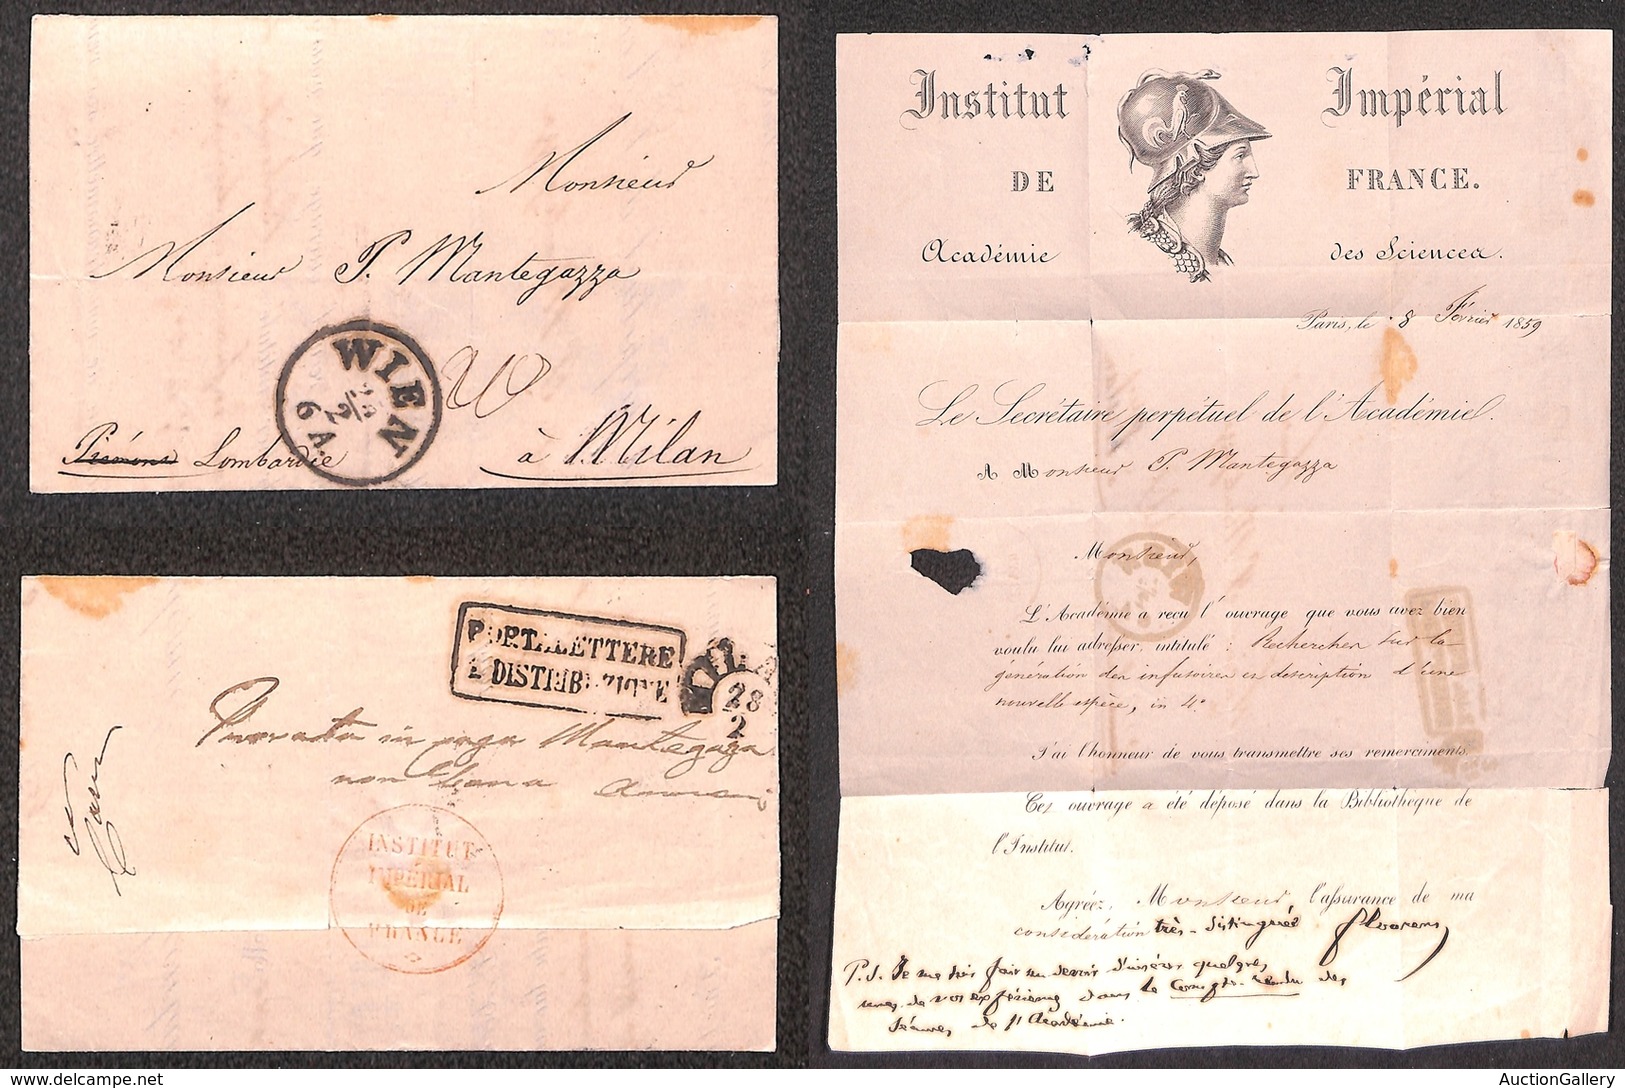 Monsieur
Monsieur P. Mantegazza
WIEN
2
6 A.
Piémont Lombardie
à Milan
PORTALETTERE
DISTRIBUZIONE
28
2
in Mantegazza
non
INSTITUT
IMPÉRIAL
DE
FRANCE
Institut Impérial
DE FRANCE.
Académie des Sciences.
Paris, le 8 Février 1859
Le Secrétaire perpétuel de l'Académie
A Monsieur P. Mantegazza
Monsieur,
L'Académie a reçu l'ouvrage que vous avez bien
voulu lui adresser, intitulé : Recherches sur la
génération des infusoires et description d'une
nouvelle espèce, in 4°
J'ai l'honneur de vous transmettre ses remerciments.
Cet ouvrage a été déposé dans la Bibliothèque de
l'Institut.
Agréez, Monsieur, l'assurance de ma
considération très-distinguée Flourens
P.S. Je me suis fait un devoir d'insérer quelques
unes de vos expériences dans le Compte-rendu des
séances de l'Académie.
AuctionGallery